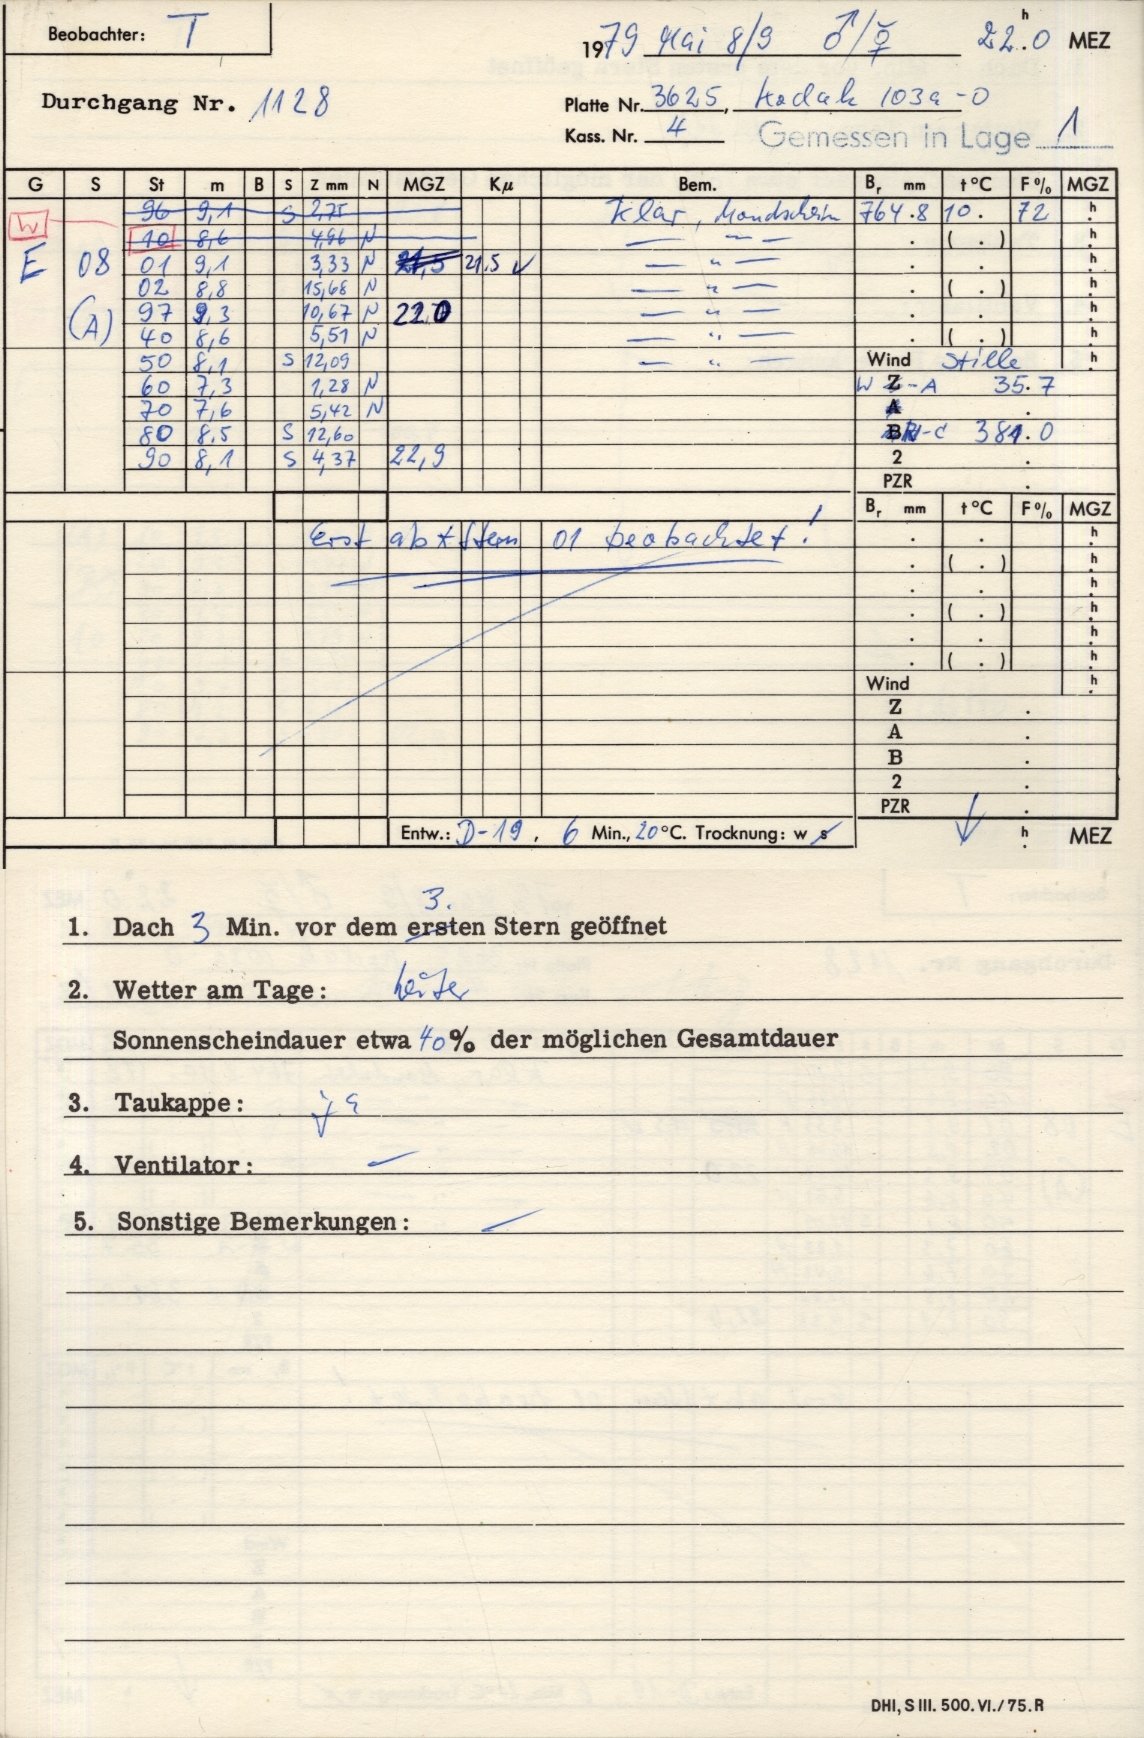 Beobachter: T
1979 Mai 8/9 ♂/♀ 22.ʰ0 MEZ
Durchgang Nr. 1128
Platte Nr. 3625, Kodak 103a-O
Kass. Nr. 4 Gemessen in Lage 1
G S St m B S Z mm N MGZ Kμ Bem. Bᵣ mm t°C F% MGZ
W 96 9,1 S 2,75 klar, Mondschein 764.8 10. 72 h
10 8,6 4,96 N — " — . ( . ) h
E 08 01 9,1 3,33 N 21,5 21.5 ✓ — " — . . h
02 8,8 15,68 N — " — . ( . ) h
(A) 97 9,3 10,67 N 22,0 — " — . . h
40 8,6 5,51 N — " — . ( . ) h
50 8,1 S 12,09 — " — Wind Stille h
60 7,3 1,28 N W Z-A 35.7
70 7,6 5,42 N A .
80 8.5 S 12,60 B -C 381.0
90 8,1 S 4,37 22,9 2 .
PZR .
Bᵣ mm t°C F% MGZ
Erst ab Stern 01 beobachtet! . . h
. ( . ) h
. . h
. ( . ) h
. . h
. ( . ) h
Wind h
Z .
A .
B .
2 .
PZR .
Entw.: D-19, 6 Min., 20°C. Trocknung: w s h. MEZ
3.
1. Dach 3 Min. vor dem ersten Stern geöffnet
2. Wetter am Tage: heiter
Sonnenscheindauer etwa 40% der möglichen Gesamtdauer
3. Taukappe: ja
4. Ventilator: —
5. Sonstige Bemerkungen: —
DHI, S III. 500. VI./75. R